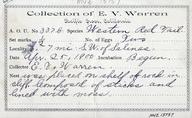 MVZ 15787
Collection of E. V. Warren
Pacific Grove, California
A. O. U. No. 337b Species Western Red Tail
Set mark No. of Eggs Two
7 mi S.W. of Salinas
Date Apr 25, 1900 Incubation Begun
Collector E. V. Warren
Nest was placed on shelf of rock in
cliff composed of sticks and
lined with moss.
MVZ 15787